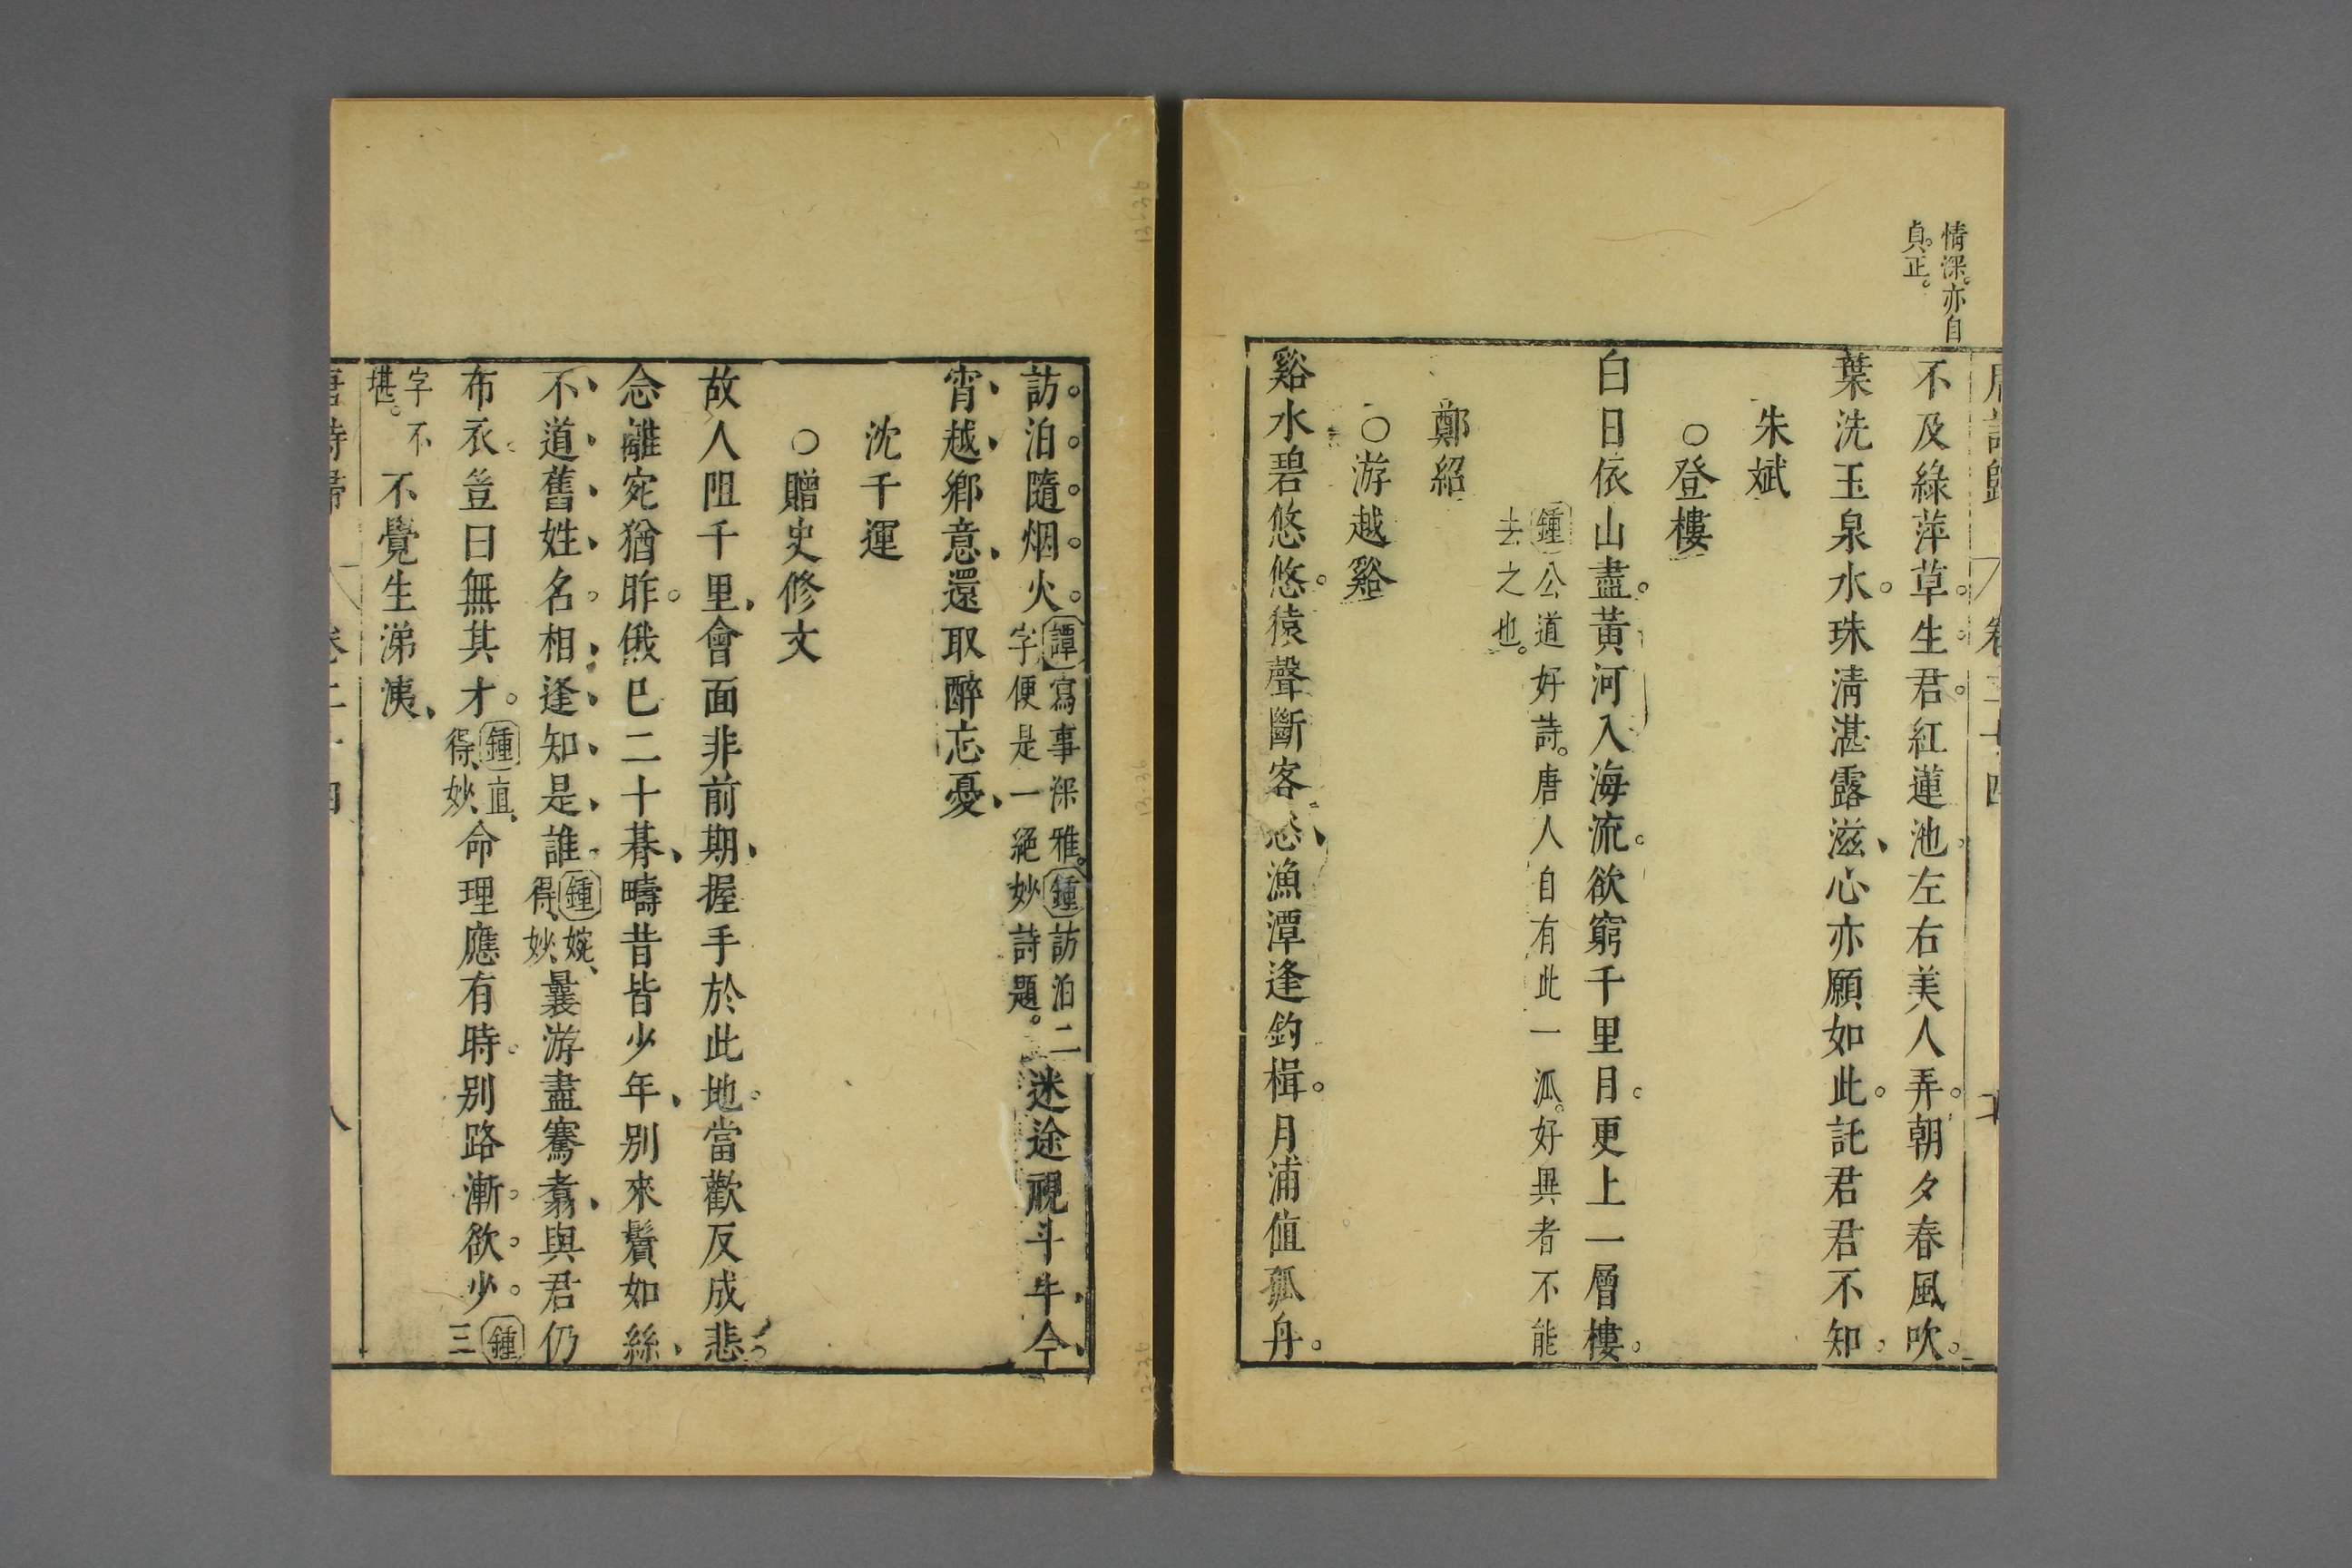 情深亦自
貞正
不及綠萍草生君紅蓮池左右美人弄朝夕春風吹
葉洗玉泉水珠清湛露滋心亦願如此託君君不知
朱斌
○登樓
白日依山盡黃河入海流欲窮千里目更上一層樓
鍾公道好詩唐人自有此一派好異者不能
去之也
鄭紹
○游越谿
谿水碧悠悠猿聲斷客愁漁潭逢釣楫月浦值孤舟
訪泊隨烟火
譚寫事深雅鍾訪泊二
字便是一絕妙詩題
迷途視斗牛今
宵越鄉意還取醉忘憂
沈千運
○贈史修文
故人阻千里會面非前期握手於此地當歡反成悲
念離宛猶昨俄已二十朞疇昔皆少年別來鬢如絲
不道舊姓名相逢知是誰
鍾婉
得妙
曩游盡騫翥與君仍
布衣豈曰無其才
鍾直
得妙
命理應有時別路漸欲少
鍾三
字不
堪
不覺生涕洟
唐詩歸
卷二十四
八